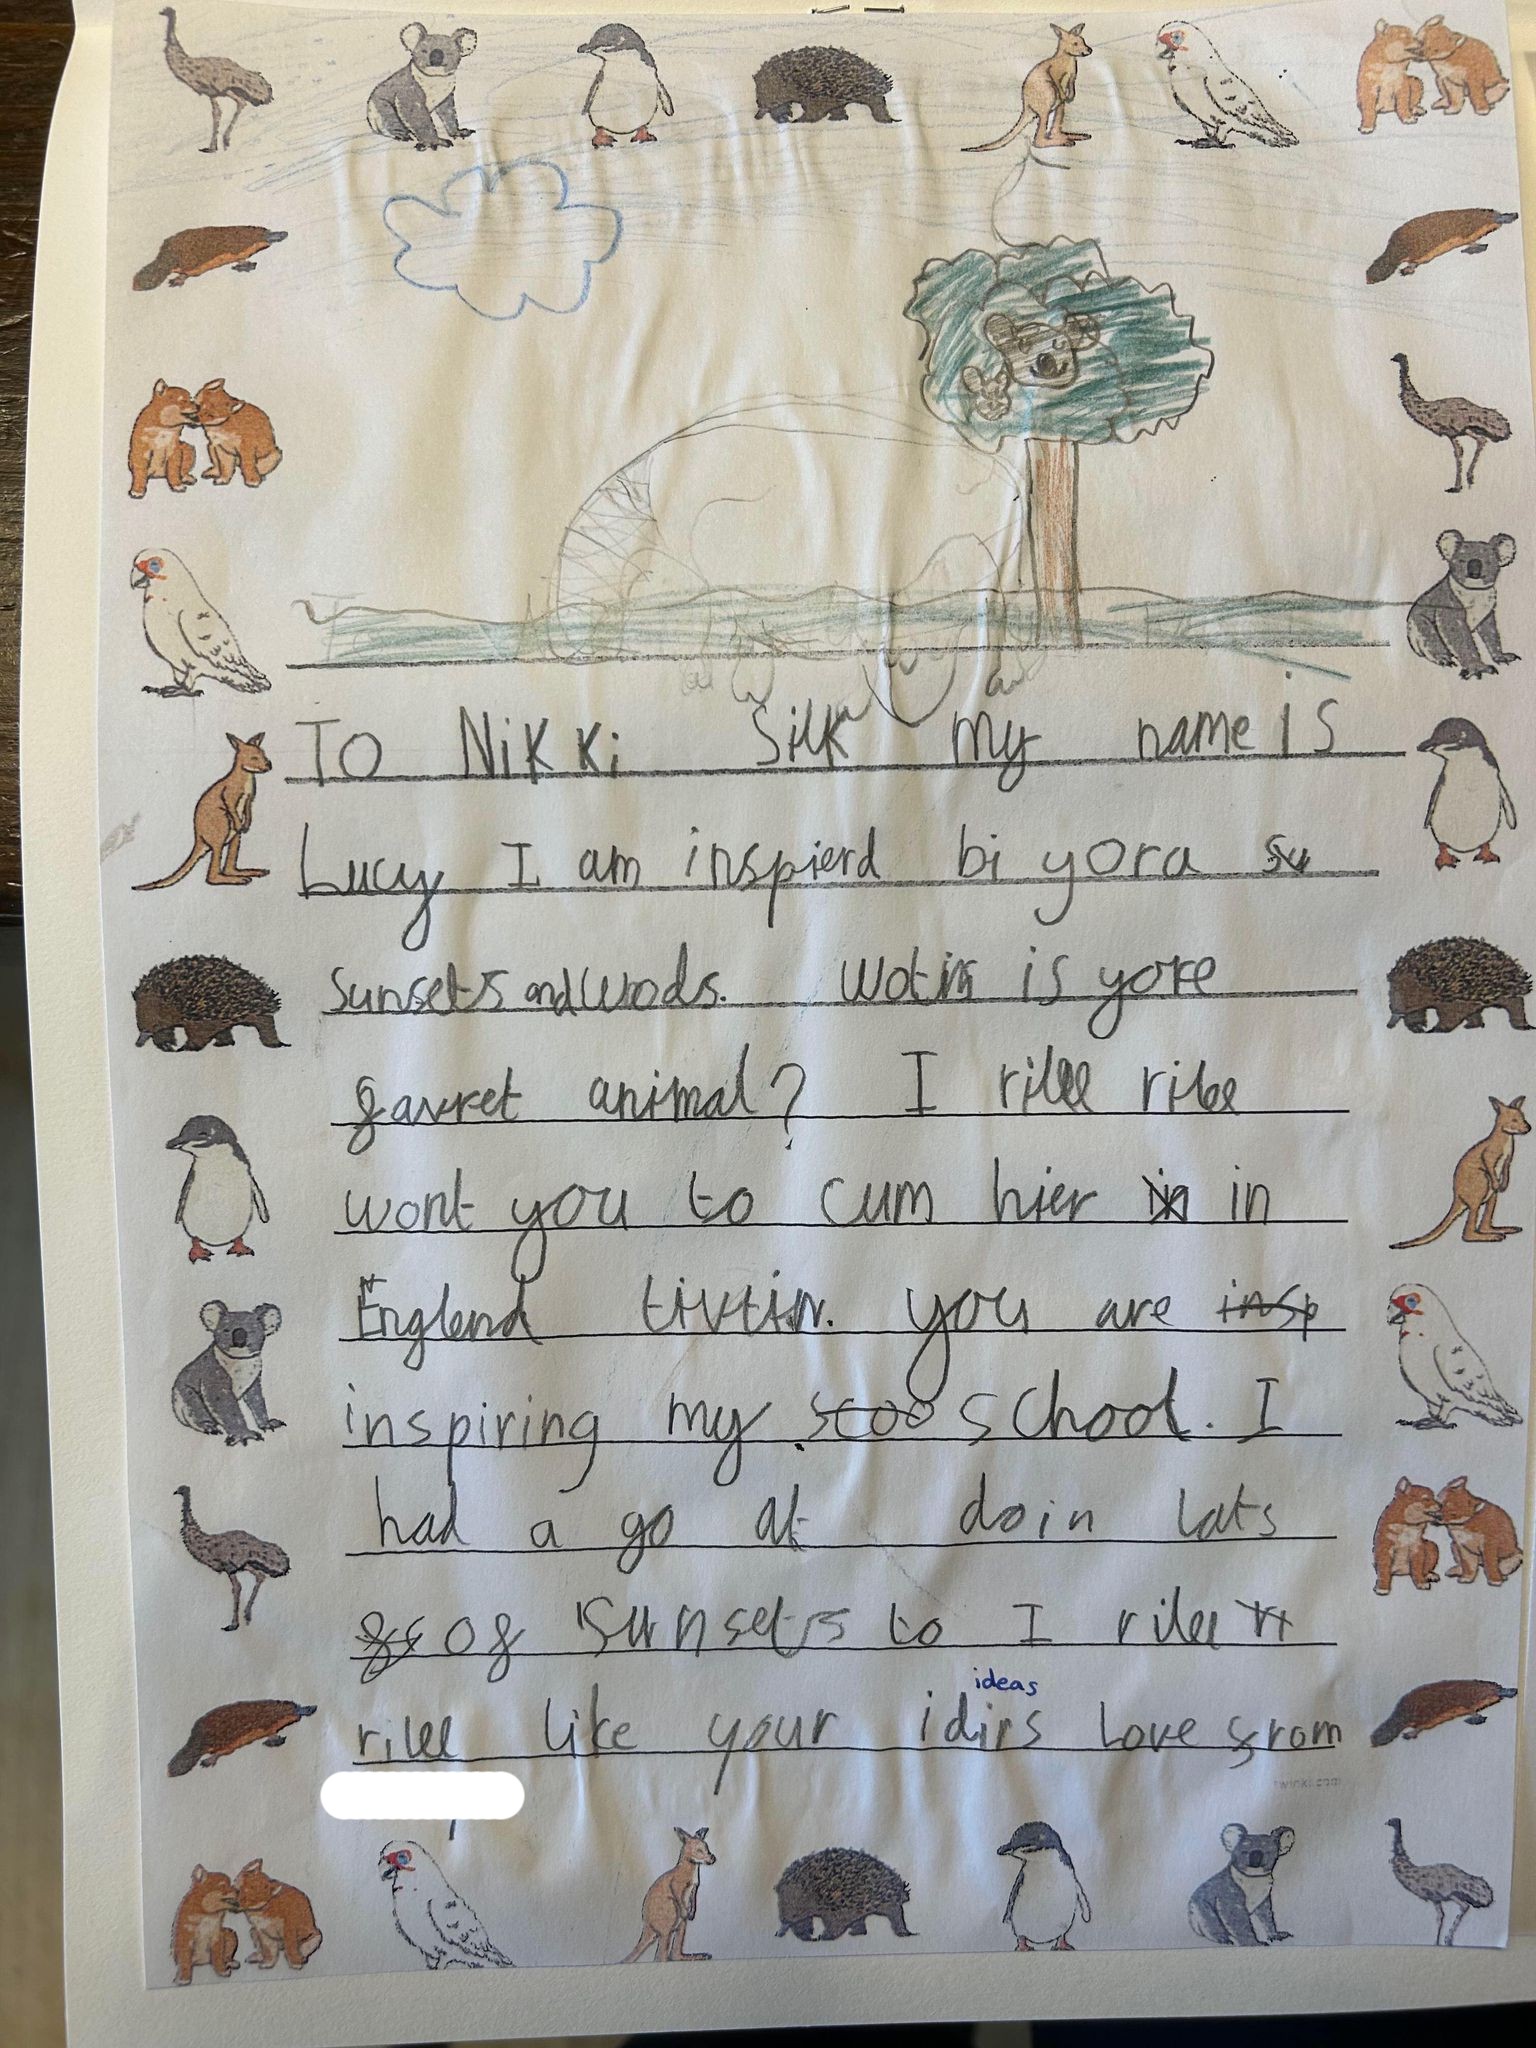 To Nikki Silk my name is
Lucy I am inspierd bi yora su
sunsets and woods. Wot is yore
favret animal? I rilee rilee
wont you to cum hier in in
Englend you are insp
inspiring my scoo school. I
had a go at doin lats
of sunsets to I rilee
ideas
rilee like your idirs Love from
twinkl.com